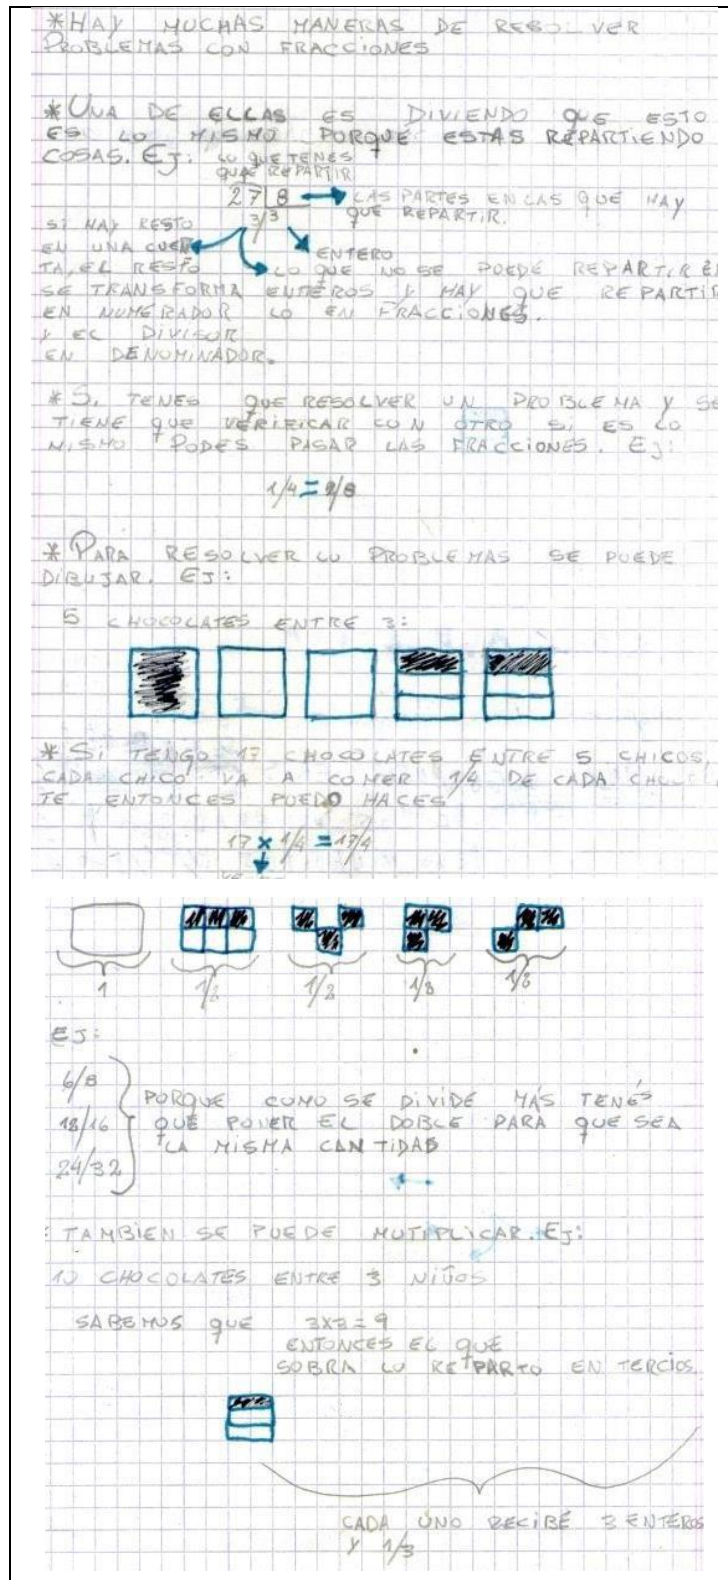 *HAY MUCHAS MANERAS DE RESOLVER
PROBLEMAS CON FRACCIONES
*UNA DE ELLAS ES DIVIENDO QUE ESTO
ES LO MISMO PORQUE ESTAS REPARTIENDO
COSAS. EJ: LO QUE TENES
QUE REPARTIR
27 8 LAS PARTES EN LAS QUE HAY
3/3 QUE REPARTIR.
SI HAY RESTO
EN UNA CUEN ENTERO
TA, EL RESTO LO QUE NO SE PUEDE REPARTIR EN
SE TRANSFORMA ENTEROS Y HAY QUE REPARTIR
EN NUMERADOR LO EN FRACCIONES.
Y EL DIVISOR
EN DENUMINADOR.
*SI TENES QUE RESOLVER UN PROBLEMA Y SE
TIENE QUE VERIFICAR CON OTRO SI ES LO
MISMO PODES PASAR LAS FRACCIONES. EJ:
1/4 = 2/8
*PARA RESOLVER LO PROBLEMAS SE PUEDE
DIBUJAR. EJ:
5 CHOCOLATES ENTRE 3:
*SI TENGO 17 CHOCOLATES ENTRE 5 CHICOS,
CADA CHICO VA A COMER 1/4 DE CADA
TE ENTONCES PUEDO HACES
17 x 1/4 = 17/4
1 1/2 1/8
EJ:
6/8
PORQUE COMO SE DIVIDE MÁS TENÉS
18/16 QUE PONER EL DOBLE PARA QUE SEA
LA MISMA CANTIDAD
24/32
TAMBIEN SE PUEDE MUTIPLICAR. EJ:
10 CHOCOLATES ENTRE 3 NIÑOS
SABEMOS QUE 3X3=9
ENTONCES EL QUE
SOBRA LO REPARTO EN TERCIOS
CADA UNO RECIBE 3 ENTEROS
Y 1/3